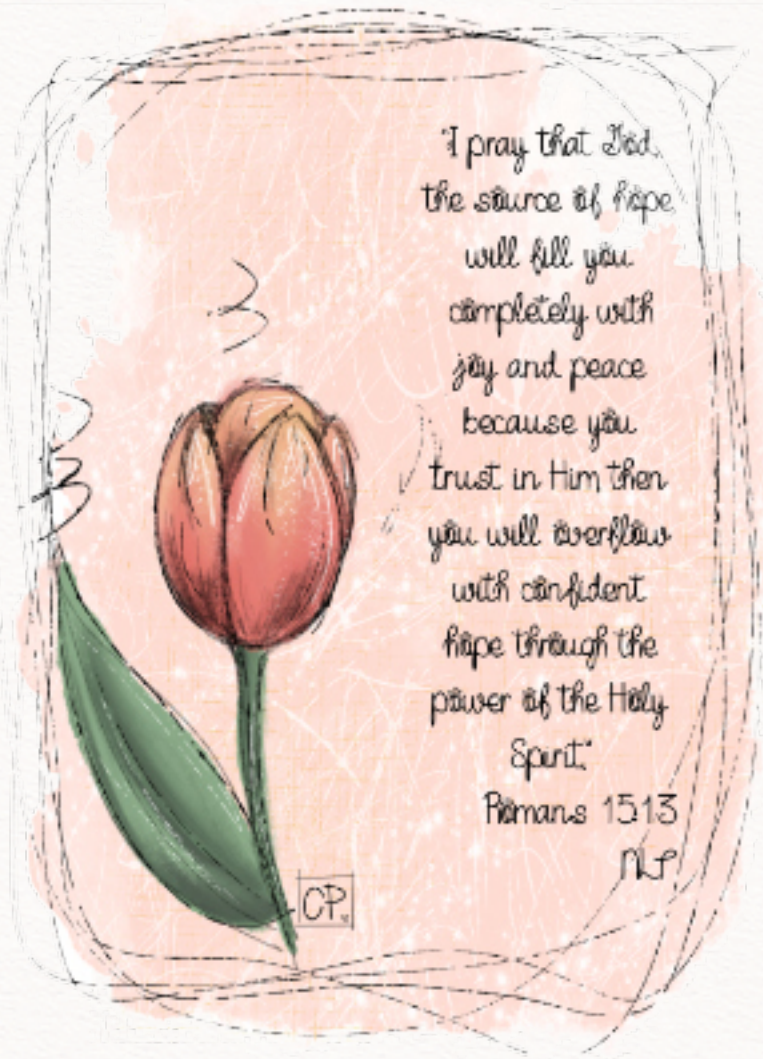 "I pray that God,
the source of hope
will fill you
completely with
joy and peace
because you
trust in Him then
you will overflow
with confident
hope through the
power of the Holy
Spirit."
Romans 15:13
NLT
CP